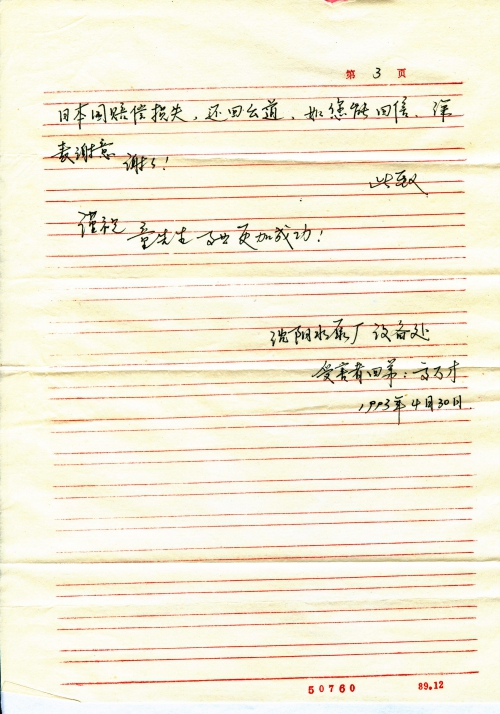 第 3 页
日本国赔偿损失，还回公道，如您能回信，深
表谢意
谢了！
此致
谨祝 童先生 事业更加成功！
沈阳水泵厂设备处
受害者四弟：高万才
1993年4月30日
50760 89.12